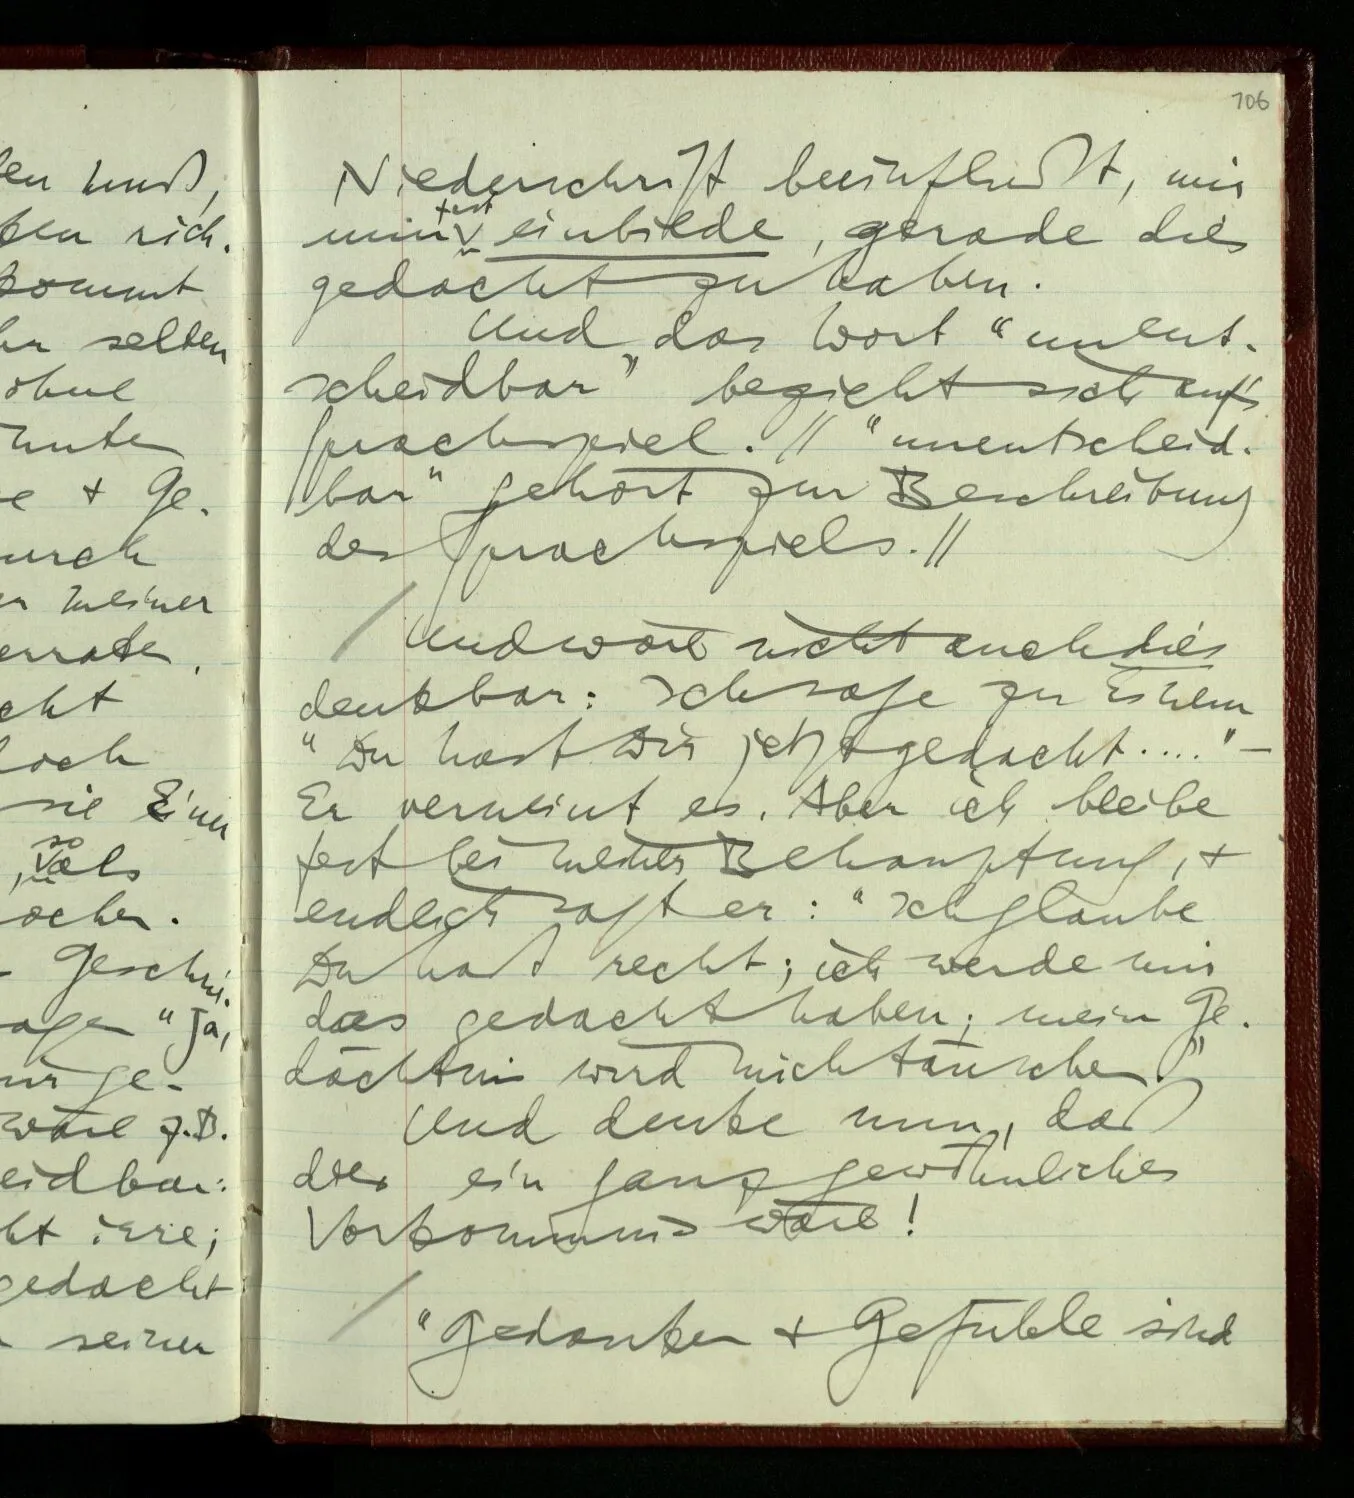 106
Niederschrift beeinflußt, mir
nun fest einbilde, gerade dies
gedacht zu haben.
Und das Wort "unent-
scheidbar" bezieht sich auf's
Sprachspiel. // "unentscheid-
bar" gehört zur Beschreibung
des Sprachspiels. //
/ Und wäre nicht auch dies
denkbar: Ich sage zu Einem
"Du hast Dir jetzt gedacht ...." –
Er verneint es. Aber ich bleibe
fest bei meiner Behauptung, +
endlich sagt er: "Ich glaube
Du hast recht; ich werde mir
das gedacht haben; mein Ge-
dächtnis wird mich täuschen."
Und denke nun, daß
dies ein ganz gewöhnliches
Vorkommnis wäre!
/ "Gedanken + Gefühle sind
muß,
kommt
selten
ohne
+ Ge-
meiner
sie Einer
so als
"Ja,
wäre z.B.
irre;
gedacht
seiner